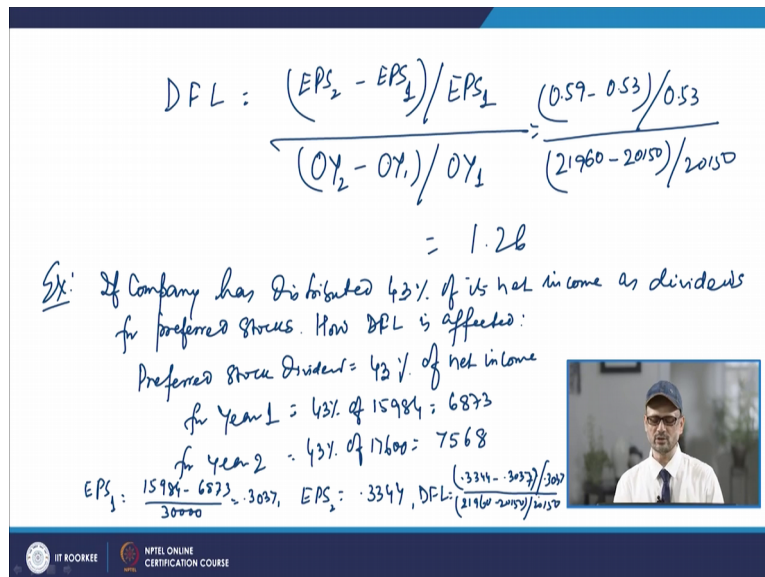 DFL = (EPS₂ - EPS₁)/EPS₁ / (OY₂ - OY₁)/OY₁ = (0.59 - 0.53)/0.53 / (21960 - 20150)/20150
= 1.26
Ex: If Company has Distributed 43% of its net income as dividends
for preferred stocks. How DFL is affected:
Preferred Stock Dividend = 43% of net income
for year 1 = 43% of 15984 = 6873
for year 2 = 43% of 17600 = 7568
EPS₁ = 15984 - 6873 / 30000 = .3037, EPS₂ = .3344, DFL = (.3344 - .3037)/.3037 / (21960 - 20150)/20150
IIT ROORKEE
NPTEL ONLINE
CERTIFICATION COURSE